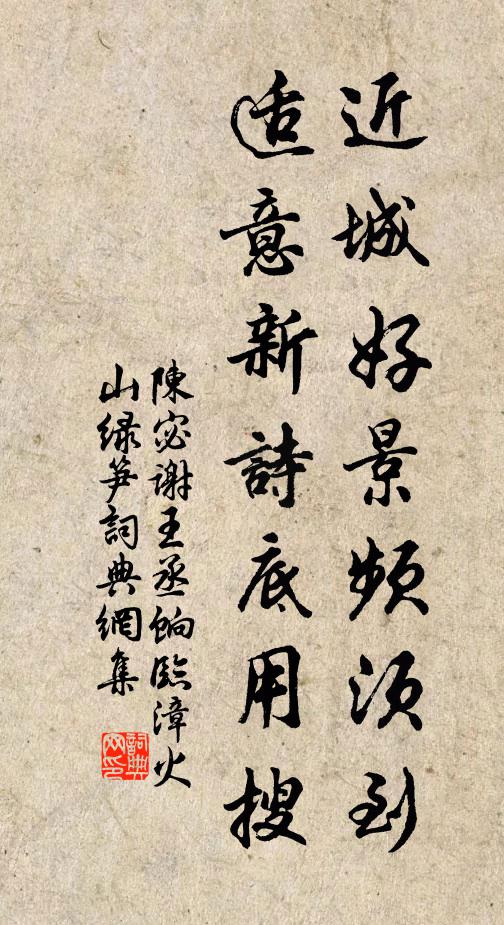 近城好景頻須到
适意新詩底用搜
陳宓謝王丞餉臨漳火
山綠笋詞典網集
詞典
网印